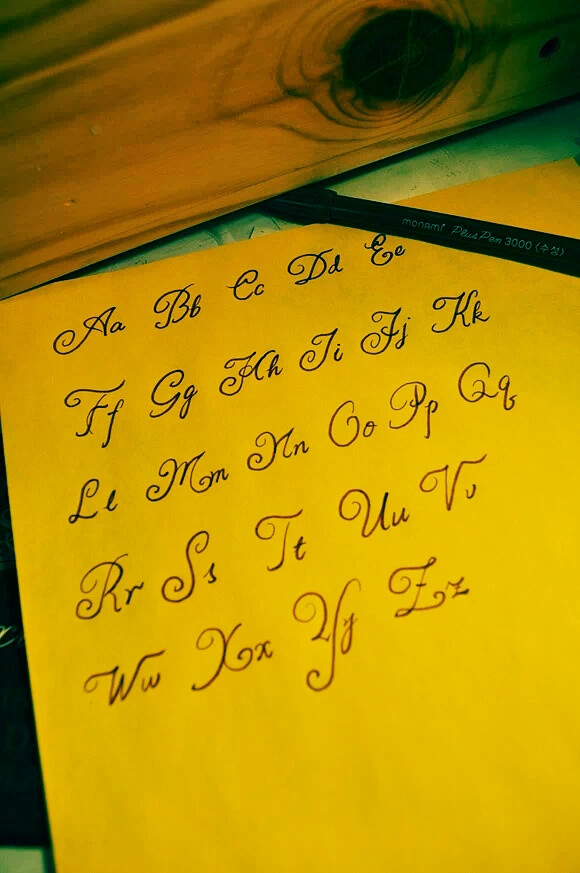 monami PlusPen 3000 (수성)
Aa Bb Cc Dd Ee
Ff Gg Hh Ii Jj Kk
Ll Mm Nn Oo Pp Qq
Rr Ss Tt Uu Vv
Ww Xx Yy Zz